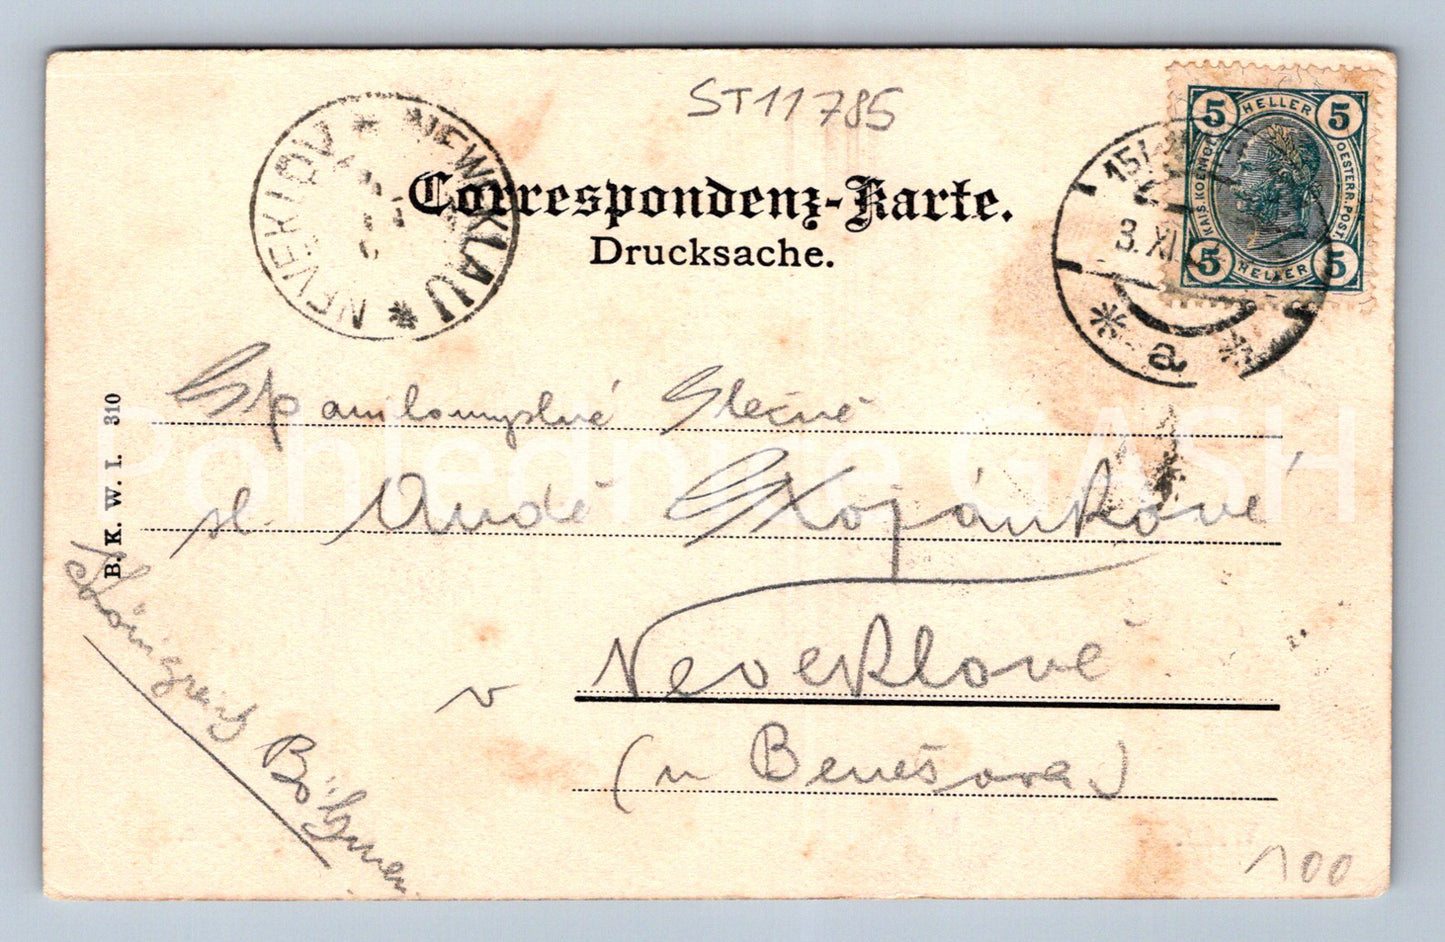 ST11785
NEVEKLOV * NEWEKLAU *
Correspondenz-Karte.
Drucksache.
5 HELLER 5
KAIS. KOENIGL. OESTERR. POST.
5 HELLER 5
15/
3. XI
* a *
B. K. W. I. 310
Pohlednice GASH
slečně
sl
v Neveklově
(u Benešova)
Böhmen
100